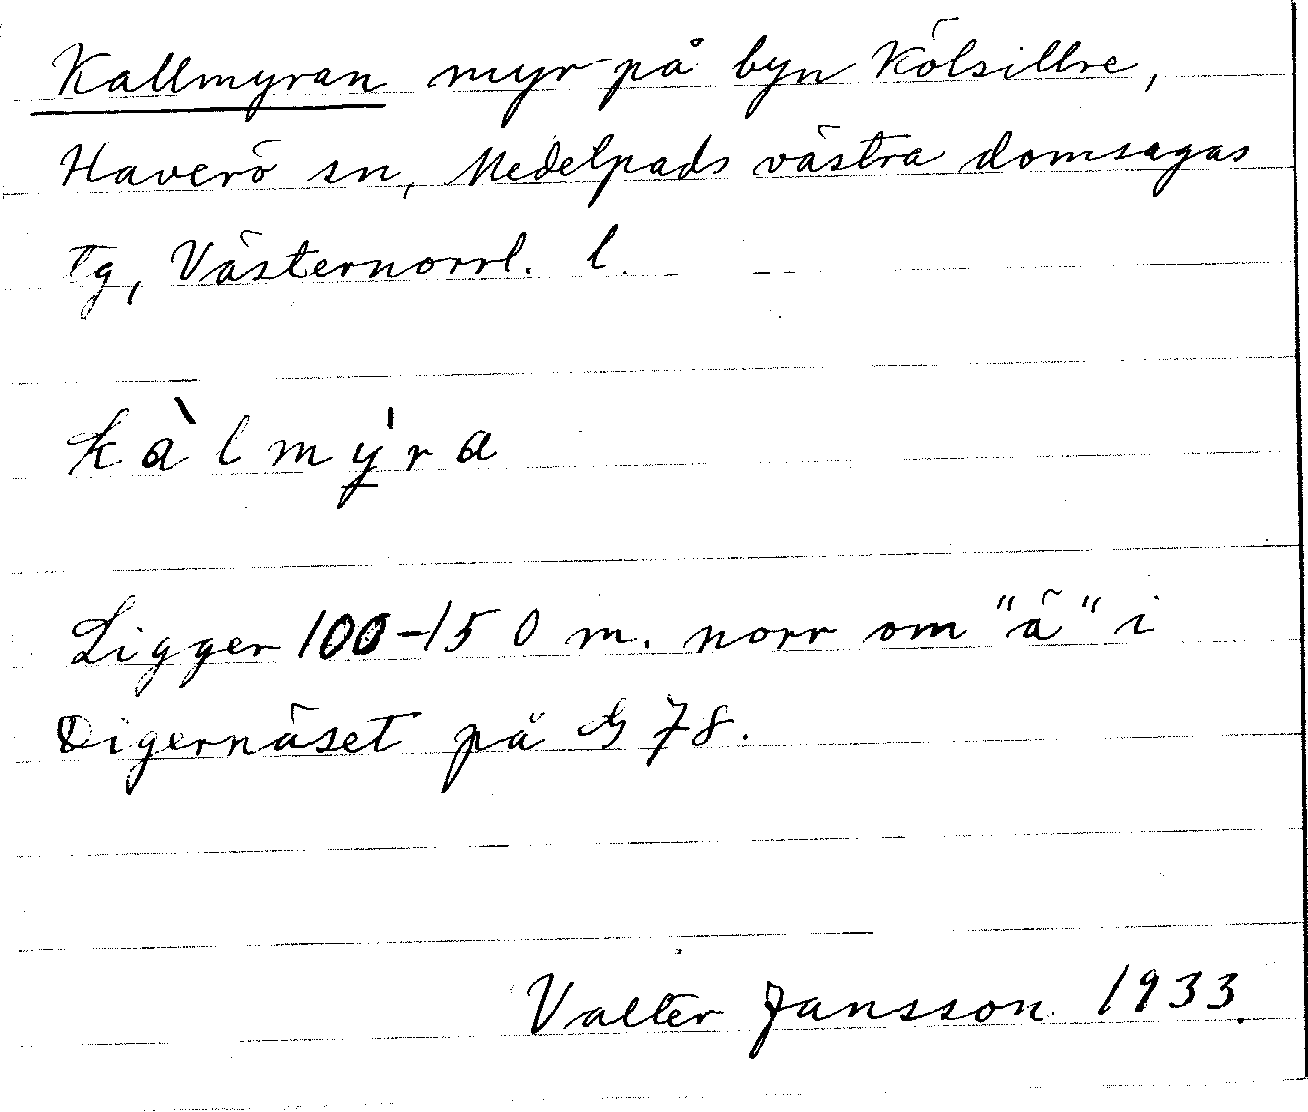 Kallmyran myr på byn Kölsillre,
Haverö sn, Medelpads västra domsagas
tg, Västernorrl. l.
kàlmýra
Ligger 100-150 m. norr om "ä" i
Digernäset på G 78.
Valter Jansson 1933.